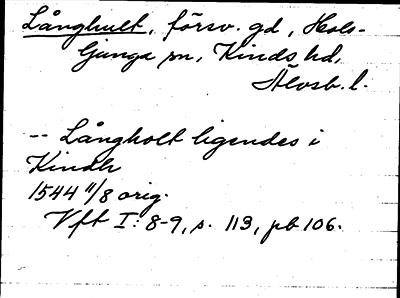 Långhult, försv. gd, Hols-
ljunga sn, Kinds hd,
Älvsb. l.
-- Långholt ligendes i
Kindh
1544 11/8 orig.
Vft I: 8-9, s. 113, pb 106.